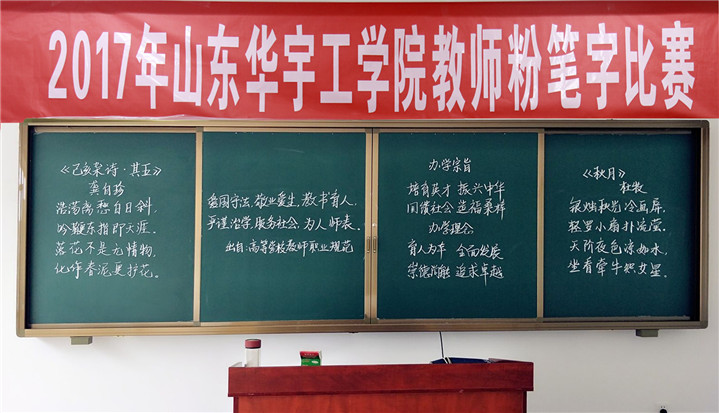 2017年山东华宇工学院教师粉笔字比赛
《己亥杂诗·其五》
龚自珍
浩荡离愁白日斜,
吟鞭东指即天涯.
落花不是无情物,
化作春泥更护花.
爱国守法,敬业爱生,教书育人,
严谨治学,服务社会,为人师表.
出自:高等学校教师职业规范
办学宗旨
培育英才 振兴中华
回馈社会 造福桑梓
办学理念
育人为本 全面发展
崇德尚能 追求卓越
《秋月》
杜牧
银烛秋光冷画屏,
轻罗小扇扑流萤.
天阶夜色凉如水,
坐看牵牛织女星.